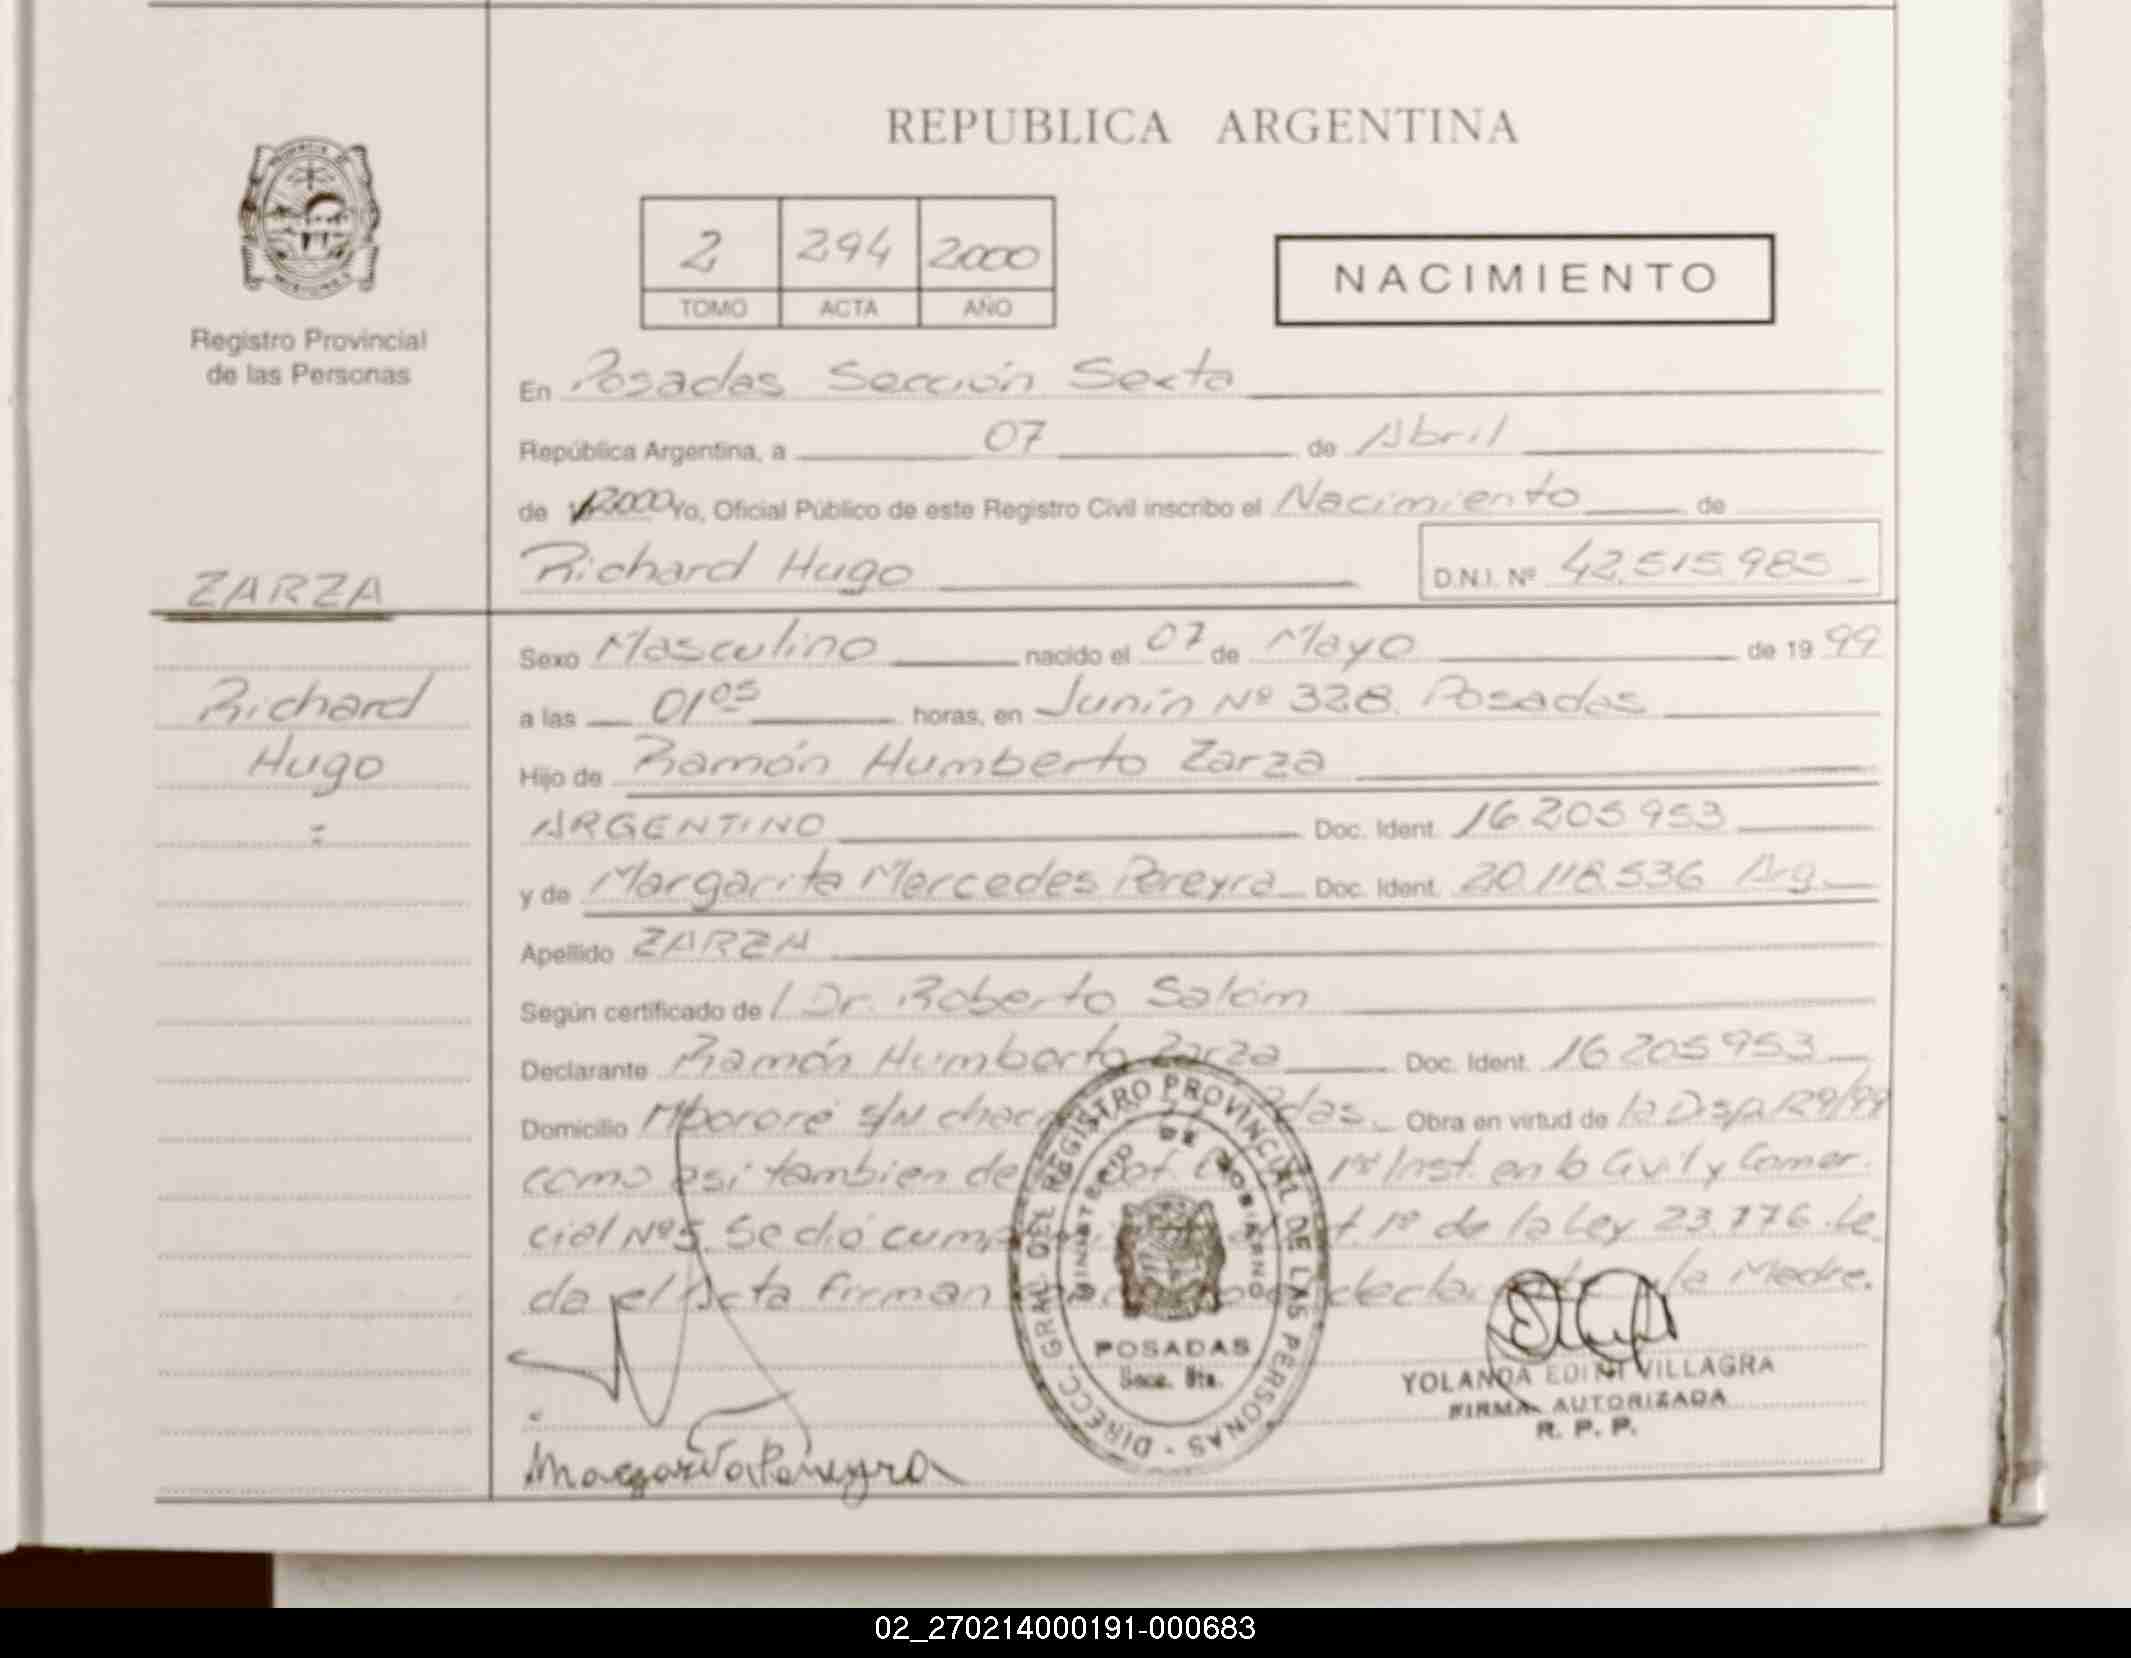 REPUBLICA ARGENTINA
2 294 2000
TOMO ACTA AÑO
NACIMIENTO
Registro Provincial
de las Personas
En Posadas Sección Sexta
República Argentina, a 07 de Abril
de 2000 Yo, Oficial Público de este Registro Civil inscribo el Nacimiento de
ZARZA
Richard Hugo D.N.I. Nº 42.515.985
Sexo Masculino nacido el 07 de Mayo de 19 99
Richard
Hugo
a las 01 05 horas, en Junín Nº 328. Posadas
Hijo de Ramón Humberto Zarza
ARGENTINO Doc. Ident. 16.205.953
y de Margarita Mercedes Pereyra Doc. Ident. 20.118.536 Arg.
Apellido ZARZA
Según certificado de Dr. Roberto Salom
Declarante Ramón Humberto Zarza Doc. Ident. 16.205.953
Domicilio Mbororé s/N Obra en virtud de la Disp. 129/99
como asi tambien de 1ª Inst. en lo Civil y Comer
cial Nº5. Se dió 1º de la Ley 23.776. Le
da el Acta firman la Madre.
DIRECC. GRAL DEL REGISTRO PROVINCIAL DE LAS PERSONAS
MINISTERIO DE GOBIERNO
POSADAS
Secc. 6ta.
YOLANDA EDITH VILLAGRA
FIRMA AUTORIZADA
R. P. P.
Margarita Pereyra
02_270214000191-000683